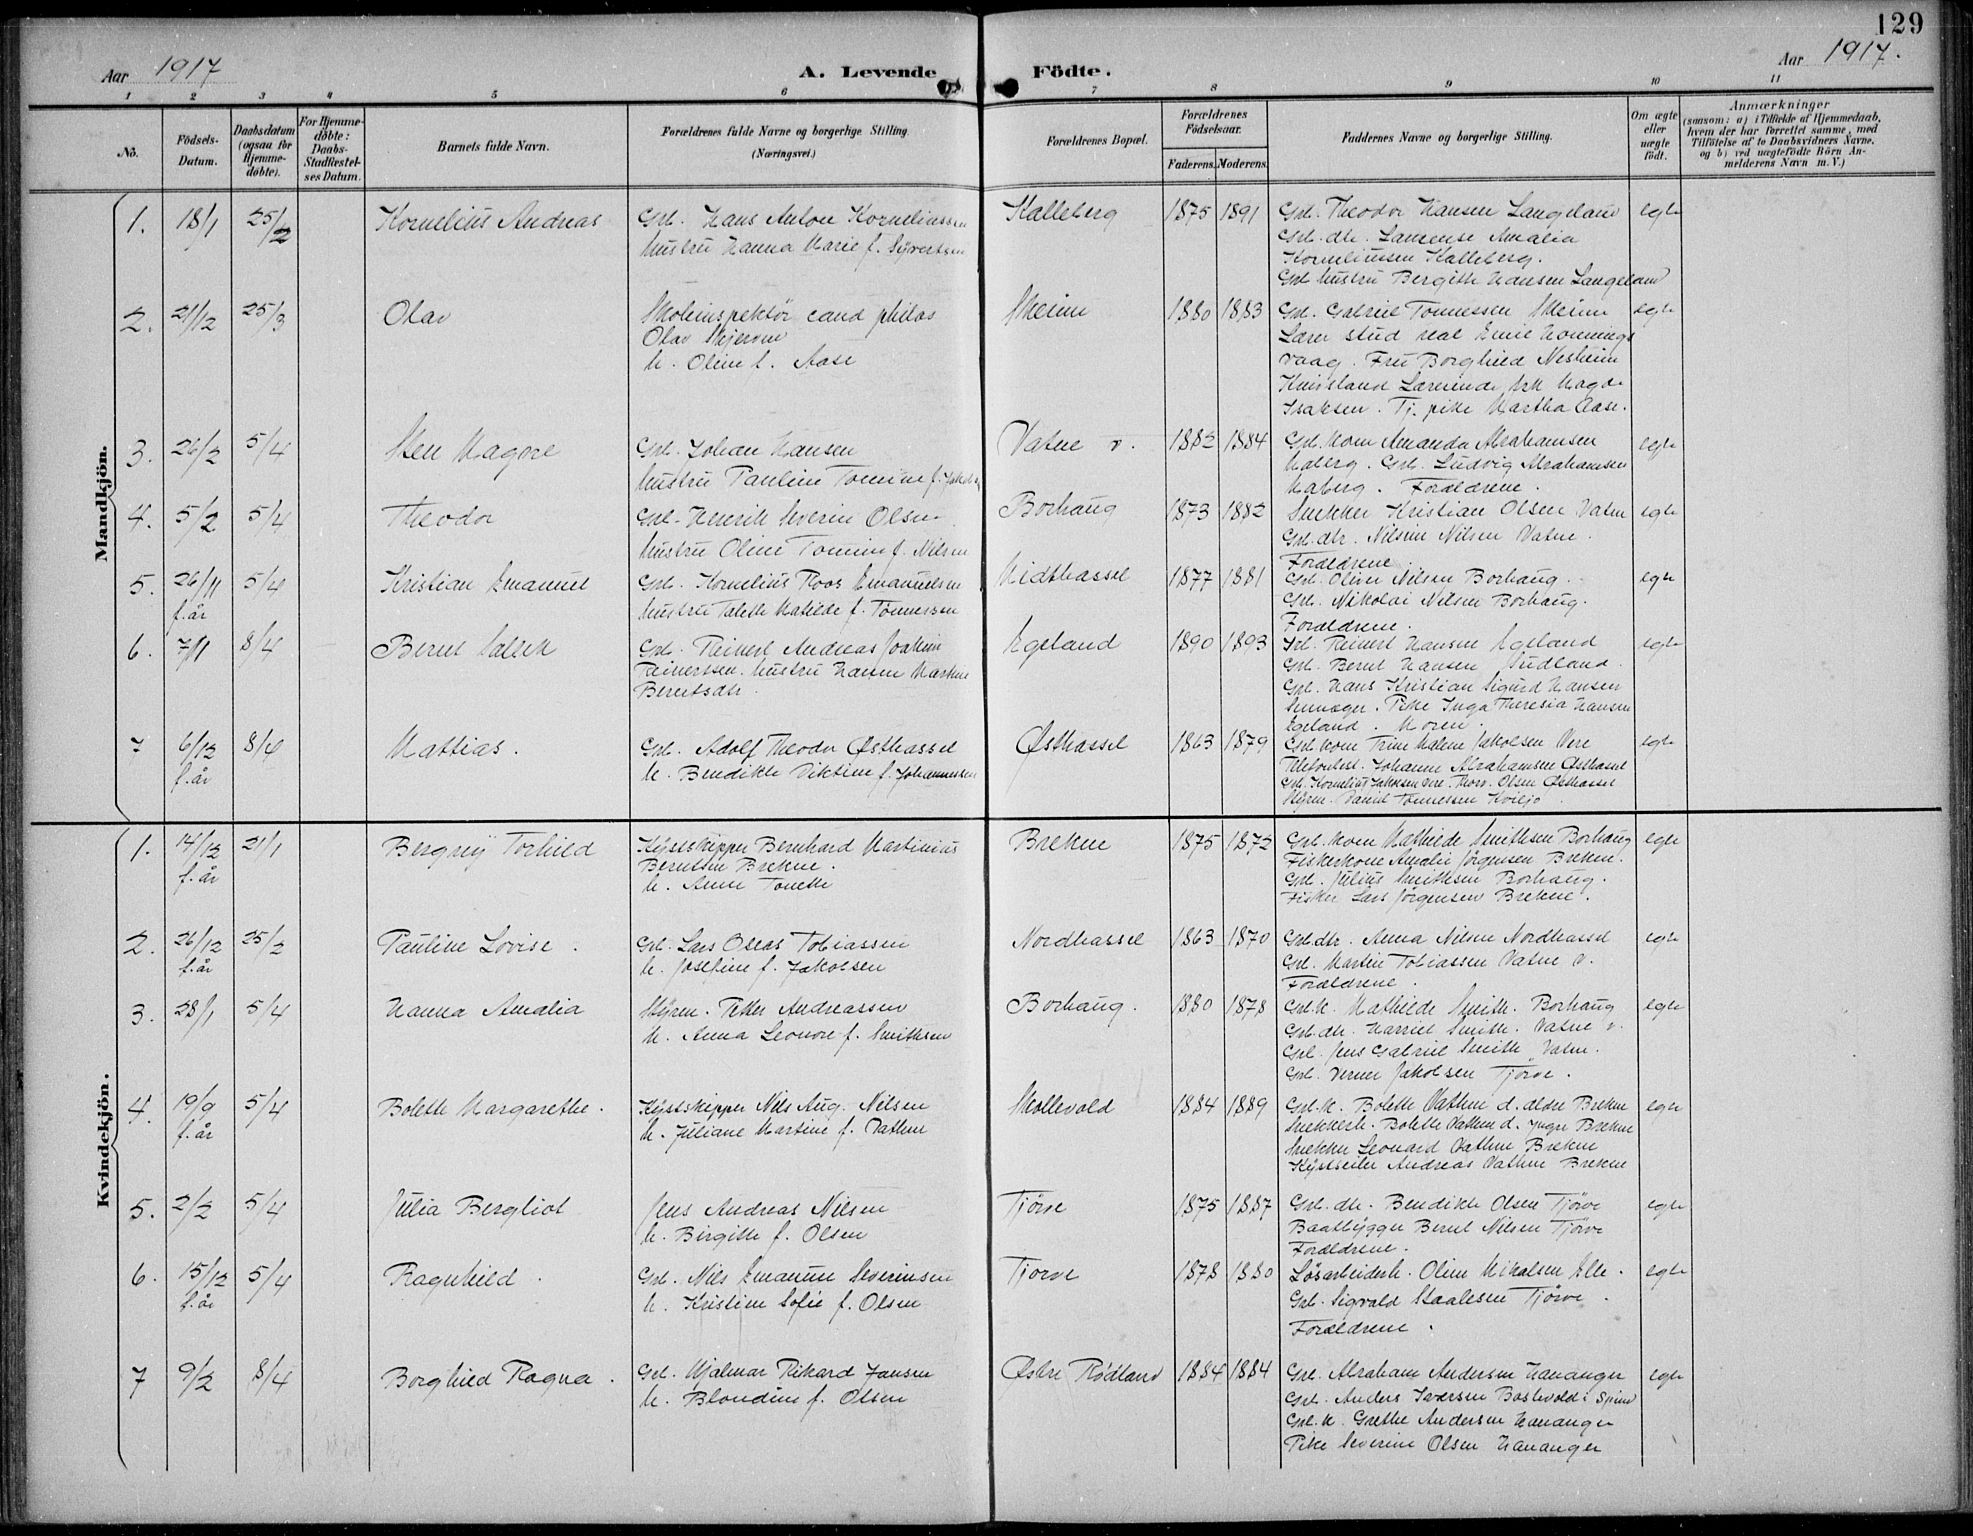 129
Aar 1917
A. Levende Födte.
Aar 1917.
1 2 3 4 5 6 7 8 9 10 11
No.
Födsels-Datum.
Daabsdatum (ogsaa for Hjemmedøbte).
For Hjemmedøbte: Daabs-Stadfæstelses Datum.
Barnets fulde Navn.
Forældrenes fulde Navne og borgerlige Stilling.
(Næringsvei.)
Forældrenes Bopæl.
Forældrenes Födselsaar.
Faderens. Moderens.
Faddernes Navne og borgerlige Stilling.
Om ægte eller uægte født.
Anmærkninger
(saasom: a) i Tilfælde af Hjemmedaab, hvem der har forrettet samme, med Tilføielse af to Daabsvidners Navne, og b) ved uægtefødte Börn Anmelderens Navn m. V.)
Mandkjön.
1. 18/1 25/2 Kornelius Andreas
Grb. Hans Anton Korneliussen
hustru Hanna Marie f. Syvertsen
Kalleberg 1875 1891
Grb. Theodor Hansen Langeland
Grb. dtr. Laurense Amalia
Korneliussen Kalleberg.
Grb hustru Bergitte Hansen Langeland
egte
2. 21/12 25/3 Olav
Skoleinspektör cand philos
Olav Skjervem
h. Oline f. Aase
Meium 1880 1883
Grb. Gabriel Tonnessen
Lærer stud real Emil Honnings
vaag. Fru Borghild Nesheim
Lærerinde frk Magda
Isaksen. Tj. pike Martha Aase.
egte
3. 26/2 5/4 Sten Magore
Grb. Johan Hansen
hustru Pauline Tomine f. Jakobs
Vatne v. 1882 1884
Grb. kone Amanda Abrahamsen
Maberg. Grb. Ludvig Abrahamsen
Maberg. Forældrene.
egte
4. 5/2 5/4 Theodor
Grb. Henrik Severin Olsen
hustru Oline Tomine f. Nilsen
Borhaug 1873 1882
Snekker Kristian Olsen Vatne
Grb. dtr. Nilsine Nilsen Vatne.
Forældrene
egte
5. 26/11 f. år 5/4 Kristian Emanuel
Grb. Kornelius Roos Emanuelsen
hustru Talette Matilde f. Tönnessen
Midthassel 1877 1881
Grb. Oliver Nilsen Borhaug.
Grb. Nikolai Nilsen Borhaug.
Forældrene.
egte
6. 7/1 8/4 Bernt
Grb. Reinert Andreas Joakim
Reinertsen. hustru Hansine Martine
Berntsdtr.
Egeland 1890 1893
Grb. Reinert Hansen Egeland
Grb. Bernt Hansen Sudland.
Grb. Hans Kristian Sigurd Hansen
Pike Inga Theresia Hansen
Egeland. Moren.
egte
7 6/12 f. år 8/4 Mattias.
Grb. Adolf Theodor Østhassel
h. Bendikte Diktine f. Johannessen
Østhassel 1863 1879
Grb. kone Trine Malene Jakobsen Vere
Johanne Abrahamsen Østhassel
Grb. Kornelius Jakobsen Vere. Thorv. Olsen Østhassel
Styrm. Daniel Tönnessen Kviljo.
egte
Kvindekjön.
1. 14/12 f. år 21/1 Bergny Torhild
Kystskipper Bernhard Martinius
Berntsen Brekne.
h. Anne Tonette
Brekne 1875 1872
Grb. kone Mathilde Smithsen Borhaug
Fiskerkone Amalie Jörgensen Brekne.
Grb. Julius Smithsen Borhaug.
Fisker Lars Jörgensen Brekne.
egte
2. 26/12 f. år 25/2 Pauline Lovise.
Grb. Lars Oseas Tobiassen
h. Josefine f. Jakobsen
Nordhassel 1863 1870
Grb. dtr. Anna Nilsen Nordhassel
Grb. Martin Tobiassen Vatne v.
Forældrene.
egte
3. 28/1 5/4 Hanna Amalia
Styrm. Petter Andreassen
h. Anna Leonore f. Smithsen
Borhaug. 1880 1878
Grb. k. Mathilde Smith. Borhaug
Grb. dtr. Harriet Smith. Vatne v.
Grb. Jens Gabriel Smith Vatne.
Grb. Verner Jakobsen Tjörve.
egte
4. 19/9 f. år 5/4 Bolette Margarethe.
Kystskipper Nils Aug. Nilsen
h. Juliane Martine f. Vathne
Mollevold 1884 1889
Grb. k. Bolette Vathne d. eldre Brekne
Snekkerk. Bolette Vathne d. yngre Brekne
Snekker Leonard Vathne Brekne
Kystseiler Andreas Vathne Brekne
egte
5. 2/2 5/4 Julia Bergliot
Jens Andreas Nilsen
h. Birgitte f. Olsen
Tjörve 1875 1887
Grb. dtr. Bendikte Olsen Tjörve
Baatbygger Bernt Nilsen Tjörve
Forældrene.
egte
6. 15/12 f. år 5/4 Ragnhild.
Grb. Nils Emanuel Severinsen
h. Kristine Sofie f. Olsen
Tjorve 1878 1880
Lösarbeiderk. Oline Mikalsen Elle.
Grb. Sigvald Staalesen Tjörve.
Forældrene.
egte
7 9/2 8/4 Borghild Ragna.
Grb. Hjalmar Rikard Jansen
h. Blondine f. Olsen
Østre Rødland 1884 1884
Grb. Abraham Andersen Hananger
Grb. Anders Iversen Bastevold i Spind
Grb. k. Grethe Andersen Hananger
Pike Severine Olsen Hananger
egte